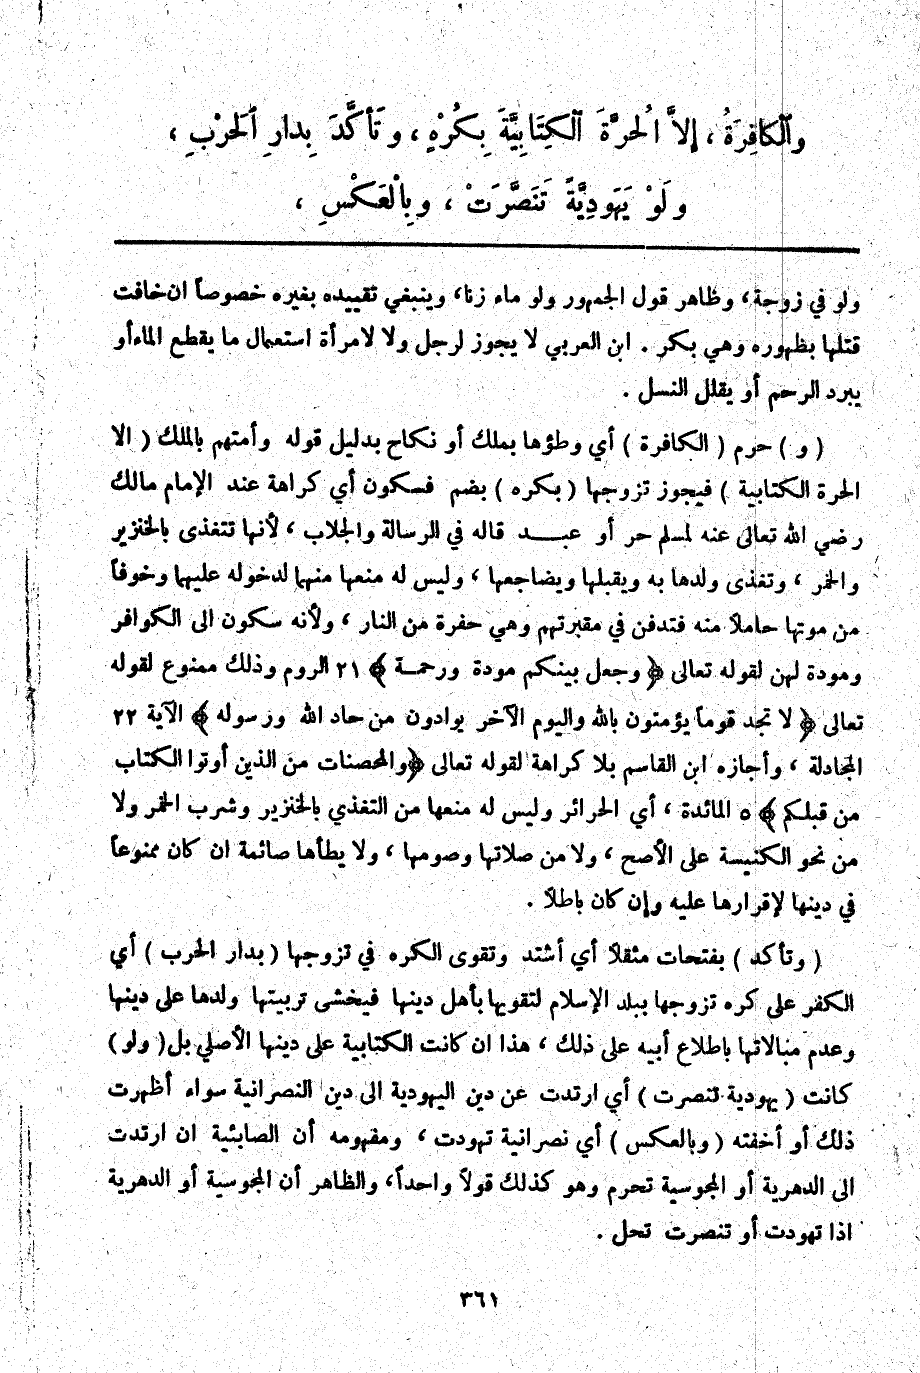 وٱلكَافِرَةُ ، إلاَّ ٱلحرَّةَ ٱلكِتَابِيَّةَ بِكُرْهٍ ، و تَأكَّدَ بِدارِ ٱلحَرْبِ ،
ولَوْ يَهَودِيَّةً تَنَصَّرَتْ ، وبِالْعَكْسِ ،
ولو في زوجة، وظاهر قول الجمهور ولو ماء زنا، وينبغي تقييده بغيره خصوصاً ان خافت
قتلها بظهوره وهي بكر . ابن العربي لا يجوز لرجل ولا لامرأة استعمال ما يقطع الماء أو
يبرد الرحم أو يقلل النسل .
( و ) حرم ( الكافرة ) أي وطؤها بملك أو نكاح بدليل قوله وأمتهم بالملك ( الا
الحرة الكتابية ) فيجوز تزوجها ( بكره ) بضم فسكون أي كراهة عند الإمام مالك
رضي الله تعالى عنه لمسلم حر أو عبـــد قاله في الرسالة والجلاب ، لأنها تتغذى بالخنزير
والخمر ، وتغذى ولدها به ويقبلها ويضاجعها ، وليس له منعها منهما لدخوله عليهما وخوفاً
من موتها حاملاً منه فتدفن في مقبرتهم وهي حفرة من النار ، ولأنه سكون الى الكوافر
ومودة لهن لقوله تعالى ﴿ وجعل بينكم مودة ورحمـة ﴾ ٢١ الروم وذلك ممنوع لقوله
تعالى ﴿ لا تجد قوماً يؤمنون بالله واليوم الآخر يوادون من حاد الله ورسوله ﴾ الآية ٢٢
المجادلة ، وأجازه ابن القاسم بلا كراهة لقوله تعالى ﴿والمحصنات من الذين أوتوا الكتاب
من قبلكم ﴾ ٥ المائدة ، أي الحرائر وليس له منعها من التغذي بالخنزير وشرب الخمر ولا
من نحو الكنيسة على الأصح ، ولا من صلاتها وصومها ، ولا يطأها صائمة ان كان ممنوعاً
في دينها لإقرارها عليه وإن كان باطلاً .
( وتأكد ) بفتحات مثقلاً أي أشتد وتقوى الكره في تزوجها ( بدار الحرب ) أي
الكفر على كره تزوجها ببلد الإسلام لتقويها بأهل دينها فيخشى تربيتها ولدها على دينها
وعدم مبالاتها باطلاع أبيه على ذلك ، هذا ان كانت الكتابية على دينها الأصلي بل ( ولو )
كانت ( يهودية تنصرت ) أي ارتدت عن دين اليهودية الى دين النصرانية سواء أظهرت
ذلك أو أخفته ( وبالعكس ) أي نصرانية تهودت ، ومفهومه أن الصابئية ان ارتدت
الى الدهرية أو المجوسية تحرم وهو كذلك قولاً واحداً، والظاهر أن المجوسية أو الدهرية
اذا تهودت أو تنصرت تحل .
٣٦١